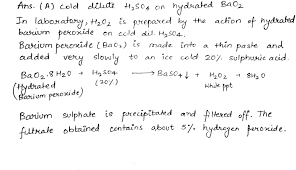 Ans. (A) Cold dilute H₂SO₄ on hydrated BaO₂
In laboratory, H₂O₂ is prepared by the action of hydrated
barium peroxide on cold dil. H₂SO₄.
Barium peroxide (BaO₂) is made into a thin paste and
added very slowly to an ice cold 20% sulphuric acid.
BaO₂.8H₂O + H₂SO₄ ⟶ BaSO₄↓ + H₂O₂ + 8H₂O
(Hydrated (20%) White ppt
Barium peroxide)
Barium sulphate is precipitated and filtered off. The
filtrate obtained contains about 5% hydrogen peroxide.